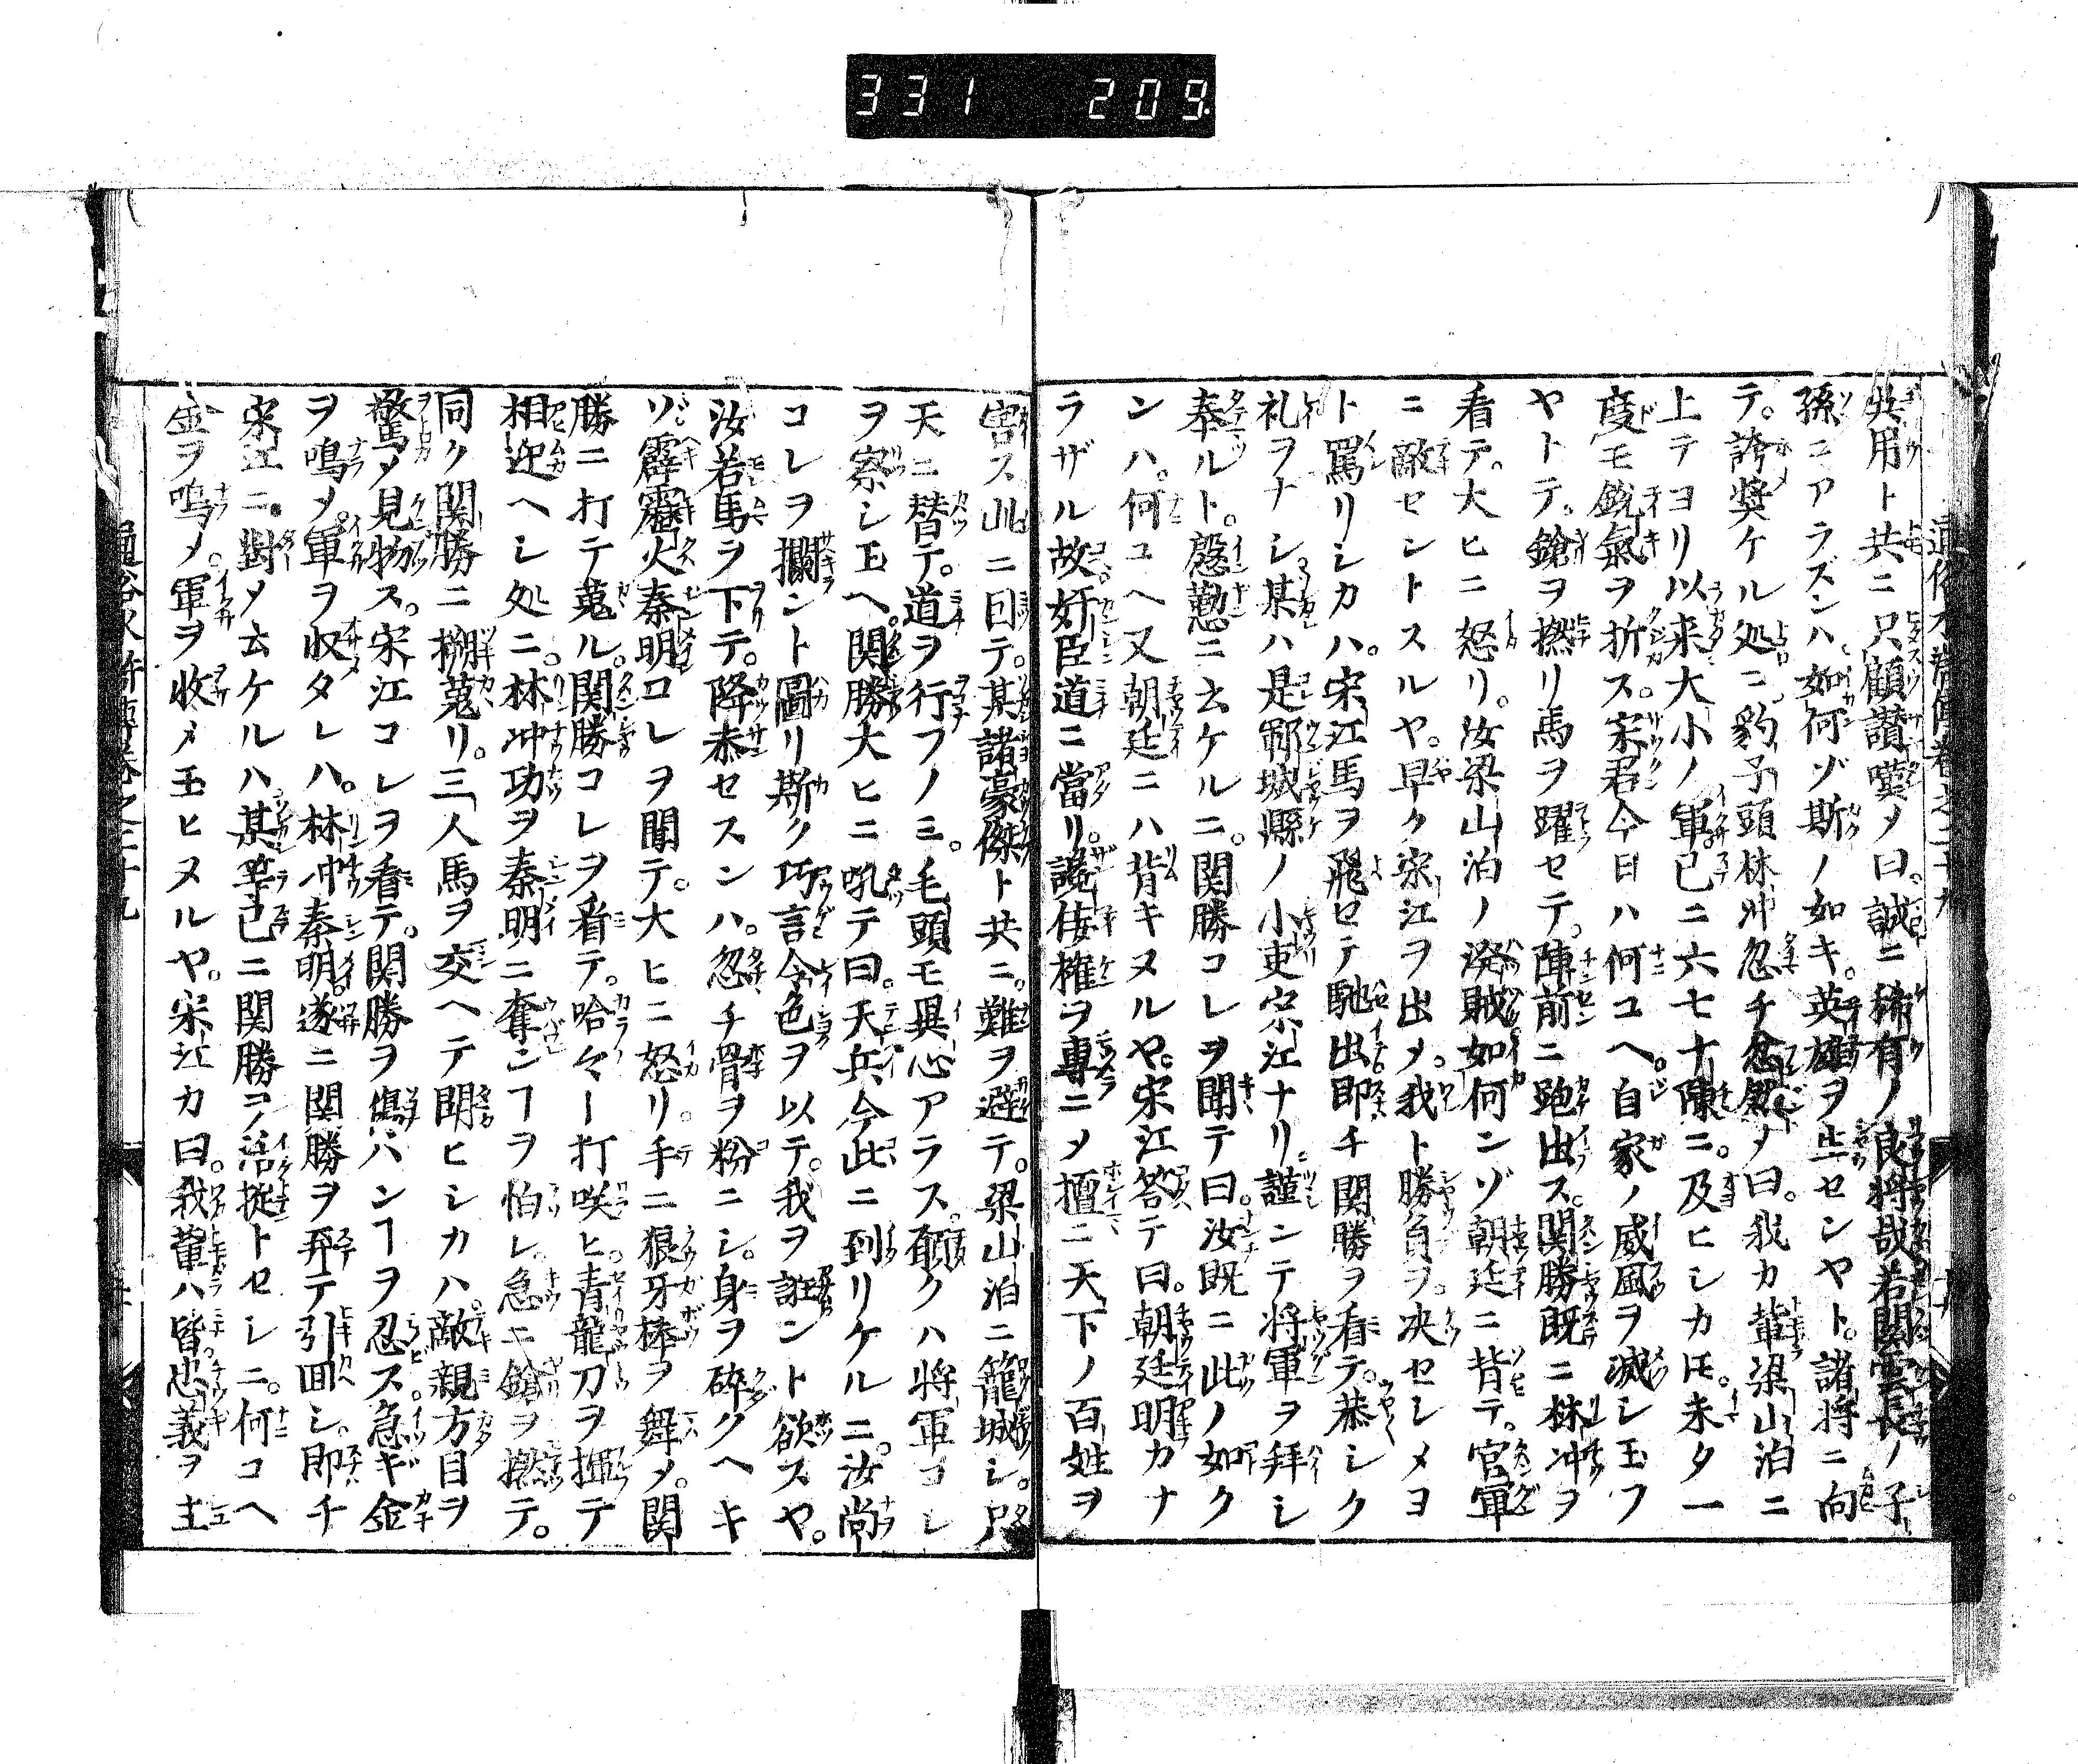 331 209.
呉用ト共ニ只顧讃嘆メ曰。誠ニ稀有ノ良将哉若関雲長ノ子
孫ニアラズンハ如何ゾ斯ノ如キ。英雄ヲ生センヤト。諸将ニ向
テ。誇奨ケル処ニ豹子頭林冲忽チ忿然メ曰。我カ輩梁山泊ニ
上テヨリ以来大小ノ軍已ニ六七十陳ニ。及ヒシカ𪜈。未タ一
度モ鋭氣ヲ折ス。宋君今日ハ何コヘ。自家ノ威風ヲ滅シ玉フ
ヤトテ。鎗ヲ撚リ馬ヲ躍セテ。陣前ニ跑出ス。関勝既ニ林冲ヲ
看テ。大ヒニ怒リ。汝梁山泊ノ溌賊如何ンゾ朝廷ニ背テ。官軍
ニ敵セントスルヤ。早ク宋江ヲ出メ。我ト勝負ヲ。决セシメヨ
ト罵リシカハ。宋江馬ヲ飛セテ馳出即チ関勝ヲ看テ。恭シク
礼ヲナシ某ハ是鄆城縣ノ小吏宋江ナリ謹ンテ将軍ヲ拜シ
奉ルト。慇懃ニ云ケルニ。関勝コレヲ聞テ曰。汝既ニ此ノ如ク
ンハ。何コヘ又朝廷ニハ背キヌルヤ。宋江答テ曰。朝廷明カナ
ラザル故奸臣道ニ當リ。讒侫権ヲ專ニメ擅ニ天下ノ百姓ヲ
害ス此ニ因テ。某諸豪傑ト共ニ。難ヲ避テ。梁山泊ニ籠城シ。只
天ニ替テ。道ヲ行フノミ。毛頭モ異心アラス。願クハ将軍コレ
ヲ察シ玉ヘ。関勝大ヒニ吼テ曰。天兵今此ニ到リケルニ。汝尚
コレヲ攔ント圖リ斯ク巧言令色ヲ以テ。我ヲ誑ント欲スヤ。
汝若馬ヲ下テ。降参セスンハ。忽チ骨ヲ粉ニシ。身ヲ碎クヘキ
ゾ。霹靂火秦明コレヲ聞テ。大ヒニ怒リ手ニ狼牙棒ヲ舞メ。関
勝ニ打テ蒐ル。関勝コレヲ看テ。哈々ト打咲ヒ。青龍刀ヲ揮テ
相迎ヘシ処ニ。林冲功ヲ秦明ニ奪ンヿヲ怕レ。急ニ鎗ヲ撚テ。
同ク関勝ニ搠蒐リ。三人馬ヲ交ヘテ鬪ヒシカハ。敵親方目ヲ
驚メ見物ス。宋江コレヲ看テ。関勝ヲ傷ハンヿヲ忍ス。急キ金
ヲ鳴メ。軍ヲ収タレハ。林冲秦明。遂ニ関勝ヲ棄テ引回シ。即チ
宋江ニ對メ云ケルハ某等已ニ関勝ヲ活捉トセシニ。何コヘ
金ヲ鳴メ。軍ヲ收メ玉ヒヌルヤ。宋江カ曰。我輩ハ皆忠義ヲ主
通俗水滸傳巻之三十九